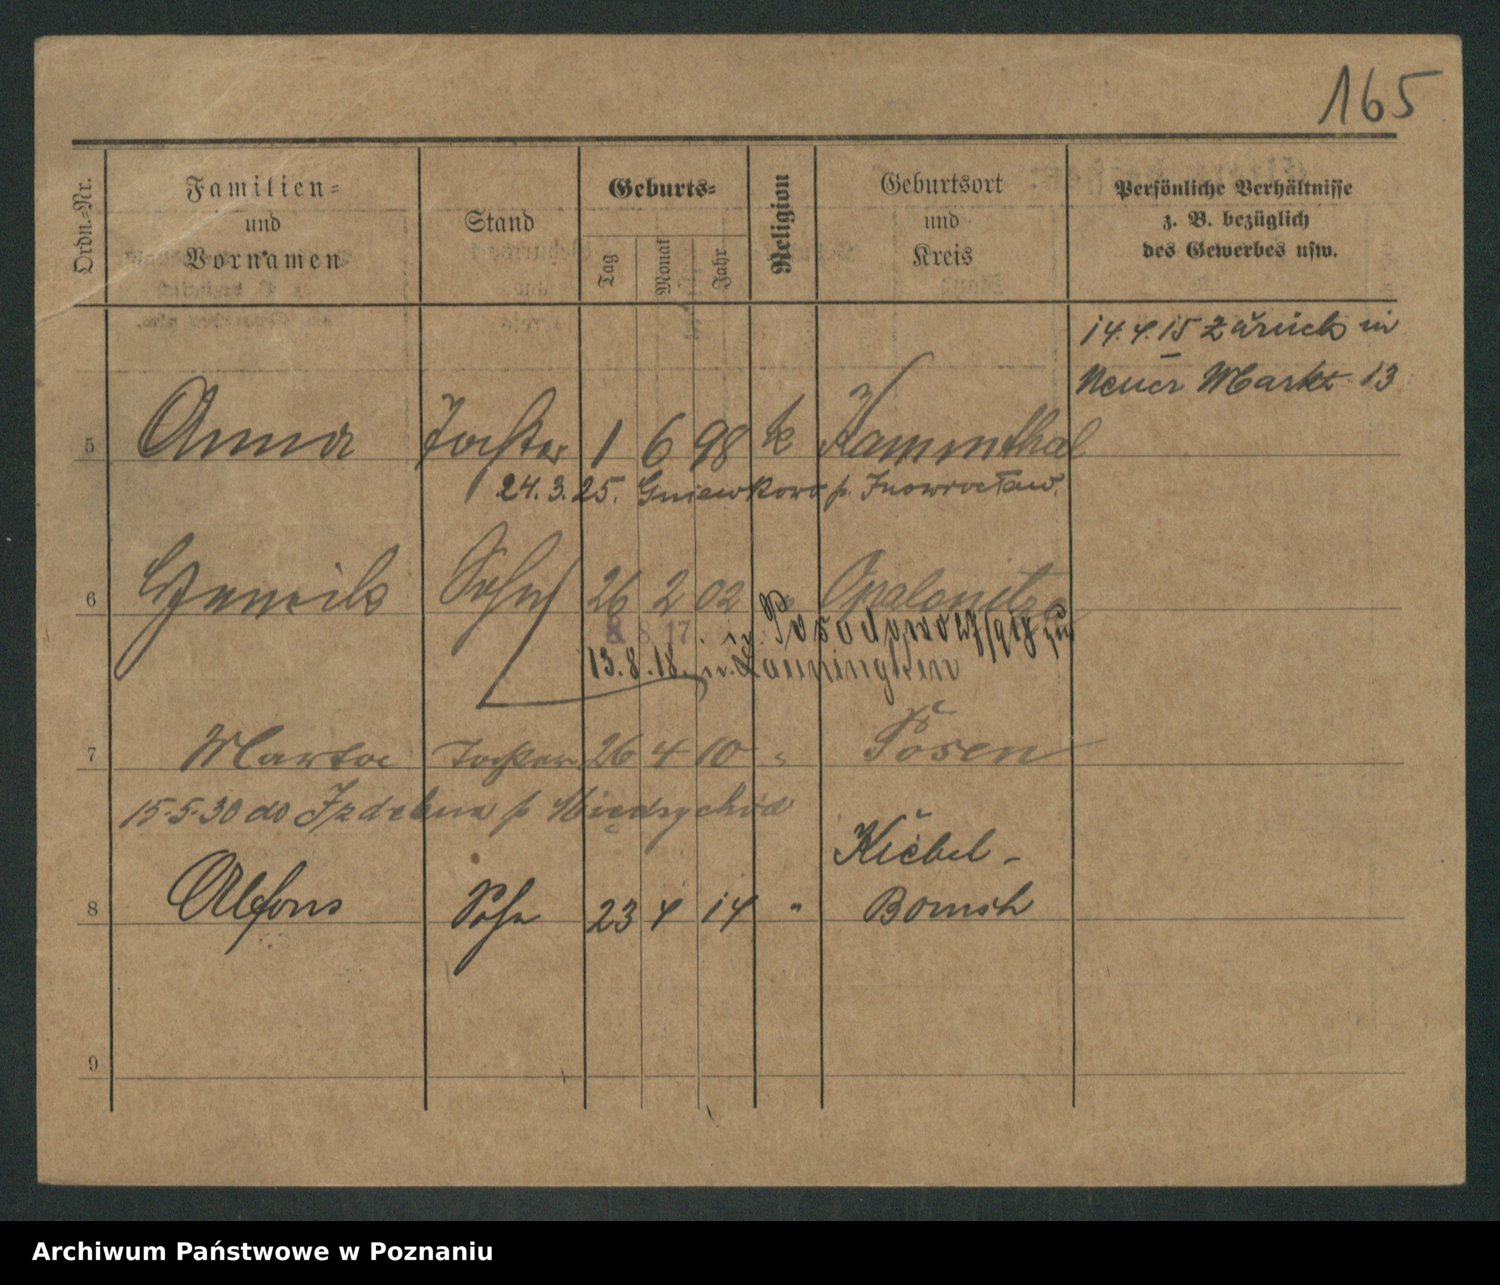 165
Ordn.-Nr.
Familien-
und
Vornamen
Stand
Geburts-
Tag
Monat
Jahr
Religion
Geburtsort
und
Kreis
Persönliche Verhältnisse
z. B. bezüglich
des Gewerbes usw.
14.4.15 zurück in
Neuer Markt 13
5 Anna Tochter 1 6 98 k Kammthal
24.3.25. Gniewkowo p. Inowrocław.
6 Sohn 26 2 02 " Opalenitza
8 8 17
13.8.18. in
7 Marta Tochter 26 4 10 " Posen
15.5.30 do Izdebna p Międzychód
8 Alfons Sohn 23 4 14 " Kiebel-
Bomst
9
Archiwum Państwowe w Poznaniu